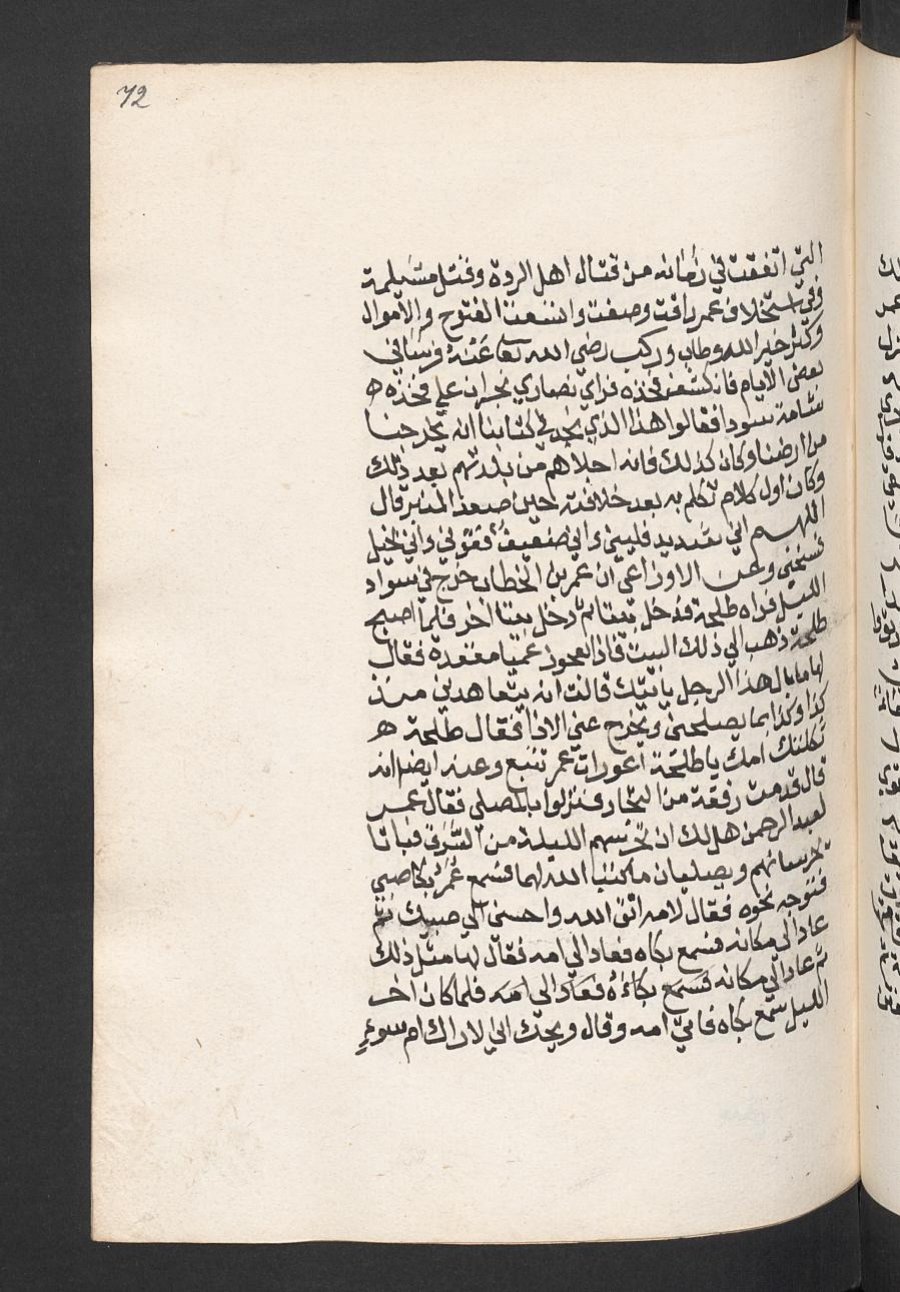 72
التي اتفقت في زمانه من قتال اهل الردة وقتل مسيلمة
وفي استخلاف عمر راقت وصفت واتسعت الفتوح والاموال
وكثر خير الله وطاب وركب رضي الله تعا عنه فرسا في
بعض الايام فانكشف فخذه فراي نصاري نجران علي فخذه ه
شامة سودا فقالوا هذا الذي نجد في كتابنا انه يخرجنا
من ارضنا وكان كذلك فانه اجلاهم من بلدتهم بعد ذلك
وكان اول كلام تكلم به بعد خلافته حين صعد المنبر قال
اللهم اني شديد فليني واني ضعيف فقوني واني بخيل
فسخني وعن الاوزاعي ان عمر بن الخطاب خرج في سواد
الليل فراه طلحة فدخل بيتا ثم دخل بيتا اخر فلما اصبح
طلحة ذهب الي ذلك البيت فاذا عجوز عميا مقعدة فقال
لها ما بال هذا الرجل ياتيك قالت انه يتعاهدني منذ
كذا وكذا بما يصلحني ويخرج عني الاذا فقال طلحة ه
ثكلتك امك يا طلحة اعورات عمر تتبع وعنه ايضا انه
قال قدمت رفقة من التجار فنزلوا بالمصلي فقال عمر
لعبد الرحمن هل لك ان تحرسهم الليلة من السرق فباتا
يحرسانهم ويصليان ما كتب الله لهما فسمع عمر بكا صبي
فتوجه نحوه فقال لامه اتق الله واحسني الي صبيك ثم
عاد الي مكانه فسمع بكاه فعاد الي امه فقال لها مثل ذلك
ثم عاد الي مكانه فسمع بكاءه فعاد الي امه فلما كان اخر
الليل سمع بكاه فاتي امه وقال ويحك اني لاراك ام سوء